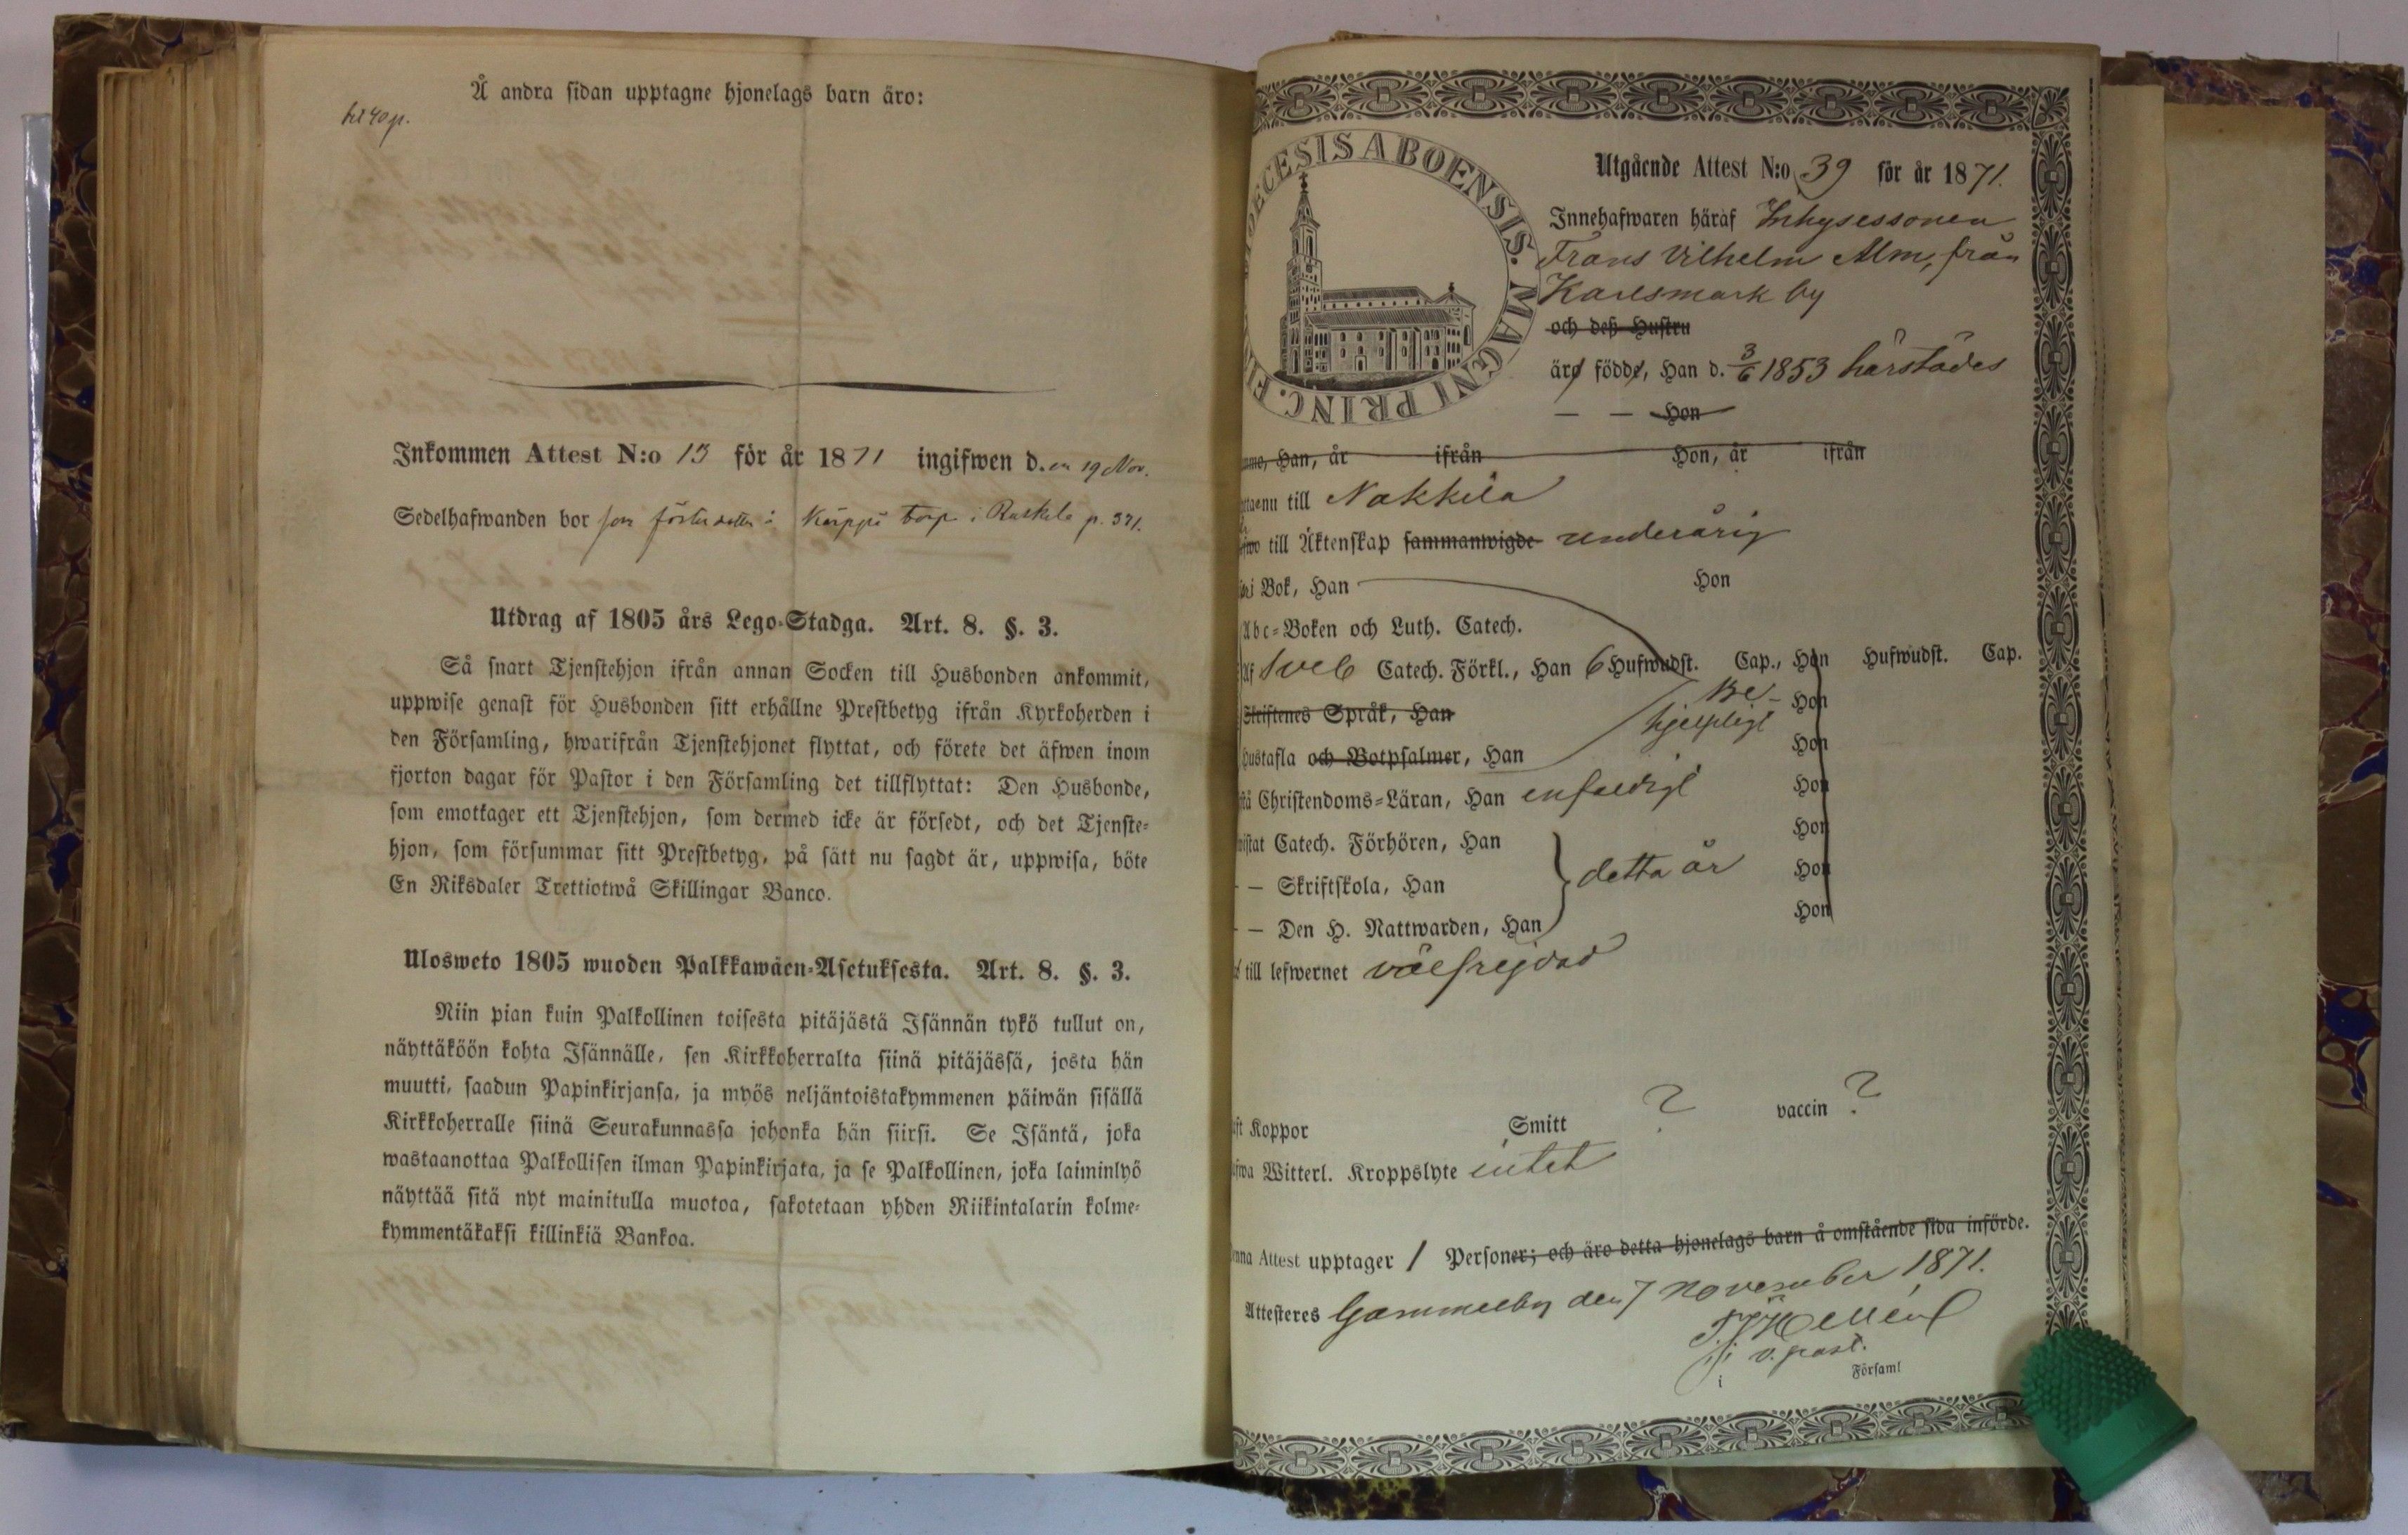 Å andra sidan upptagne hjonelags barn äro:
Inkommen Attest N:o 13 för år 1871 ingifwen d. en 19 Nov.
Sedelhafwanden bor som i torp i p. 371.
Utdrag af 1805 års Lego-Stadga. Art. 8. §. 3.
Så snart Tjenstehjon ifrån annan Socken till Husbonden ankommit,
uppwise genast för Husbonden sitt erhållne Prestbetyg ifrån Kyrkoherden i
den Församling, hwarifrån Tjenstehjonet flyttat, och förete det äfwen inom
fjorton dagar för Pastor i den Församling det tillflyttat: Den Husbonde,
som emottager ett Tjenstehjon, som dermed icke är försedt, och det Tjenste-
hjon, som försummar sitt Prestbetyg, på sätt nu sagdt är, uppwisa, böte
En Riksdaler Trettiotwå Skillingar Banco.
Ulosweto 1805 wuoden Palkkawäen-Asetuksesta. Art. 8. §. 3.
Niin pian kuin Palkollinen toisesta pitäjästä Isännän tykö tullut on,
näyttäköön kohta Isännälle, sen Kirkkoherralta siinä pitäjässä, josta hän
muutti, saadun Papinkirjansa, ja myös neljäntoistakymmenen päiwän sisällä
Kirkkoherralle siinä Seurakunnassa johonka hän siirsi. Se Isäntä, joka
wastaanottaa Palkollisen ilman Papinkirjata, ja se Palkollinen, joka laiminlyö
näyttää sitä nyt mainitulla muotoa, sakotetaan yhden Riikintalarin kolme-
kymmentäkaksi killinkiä Bankoa.
ECESIS ABOENSIS. MAGNI PRINC. FI
Utgående Attest N:o 39 för år 1871.
Innehafwaren häraf Inhysessonen
Frans Vilhelm Alm, från
Karlsmark by
och deß Hustru
äro födde, Han d. 3/6 1853 härstädes
— — Hon
Han, år ifrån Hon, år ifrån
till Nakkila
till Äktenskap sammanwigde underårig
i Bok, Han Hon
Abc-Boken och Luth. Catech.
Af Sveb Catech. Förkl., Han 6 Hufwudst. Cap., Hon Hufwudst. Cap.
Skriftenes Språk, Han Be- Hon
hjelpligt
Hustafla och Botpsalmer, Han Hon
Christendoms-Läran, Han enfaldigt Hon
Catech. Förhören, Han Hon
— Skriftskola, Han detta år Hon
— Den H. Nattwarden, Han Hon
till lefwernet välfrejdad
Koppor Smitt ? vaccin ?
Witterl. Kroppslyte intet
Attest upptager 1 Personer; och äro detta hjonelags barn å omstående sida införde.
Attesteres Gammelby den 7 november 1871.
v. past.
i Församl